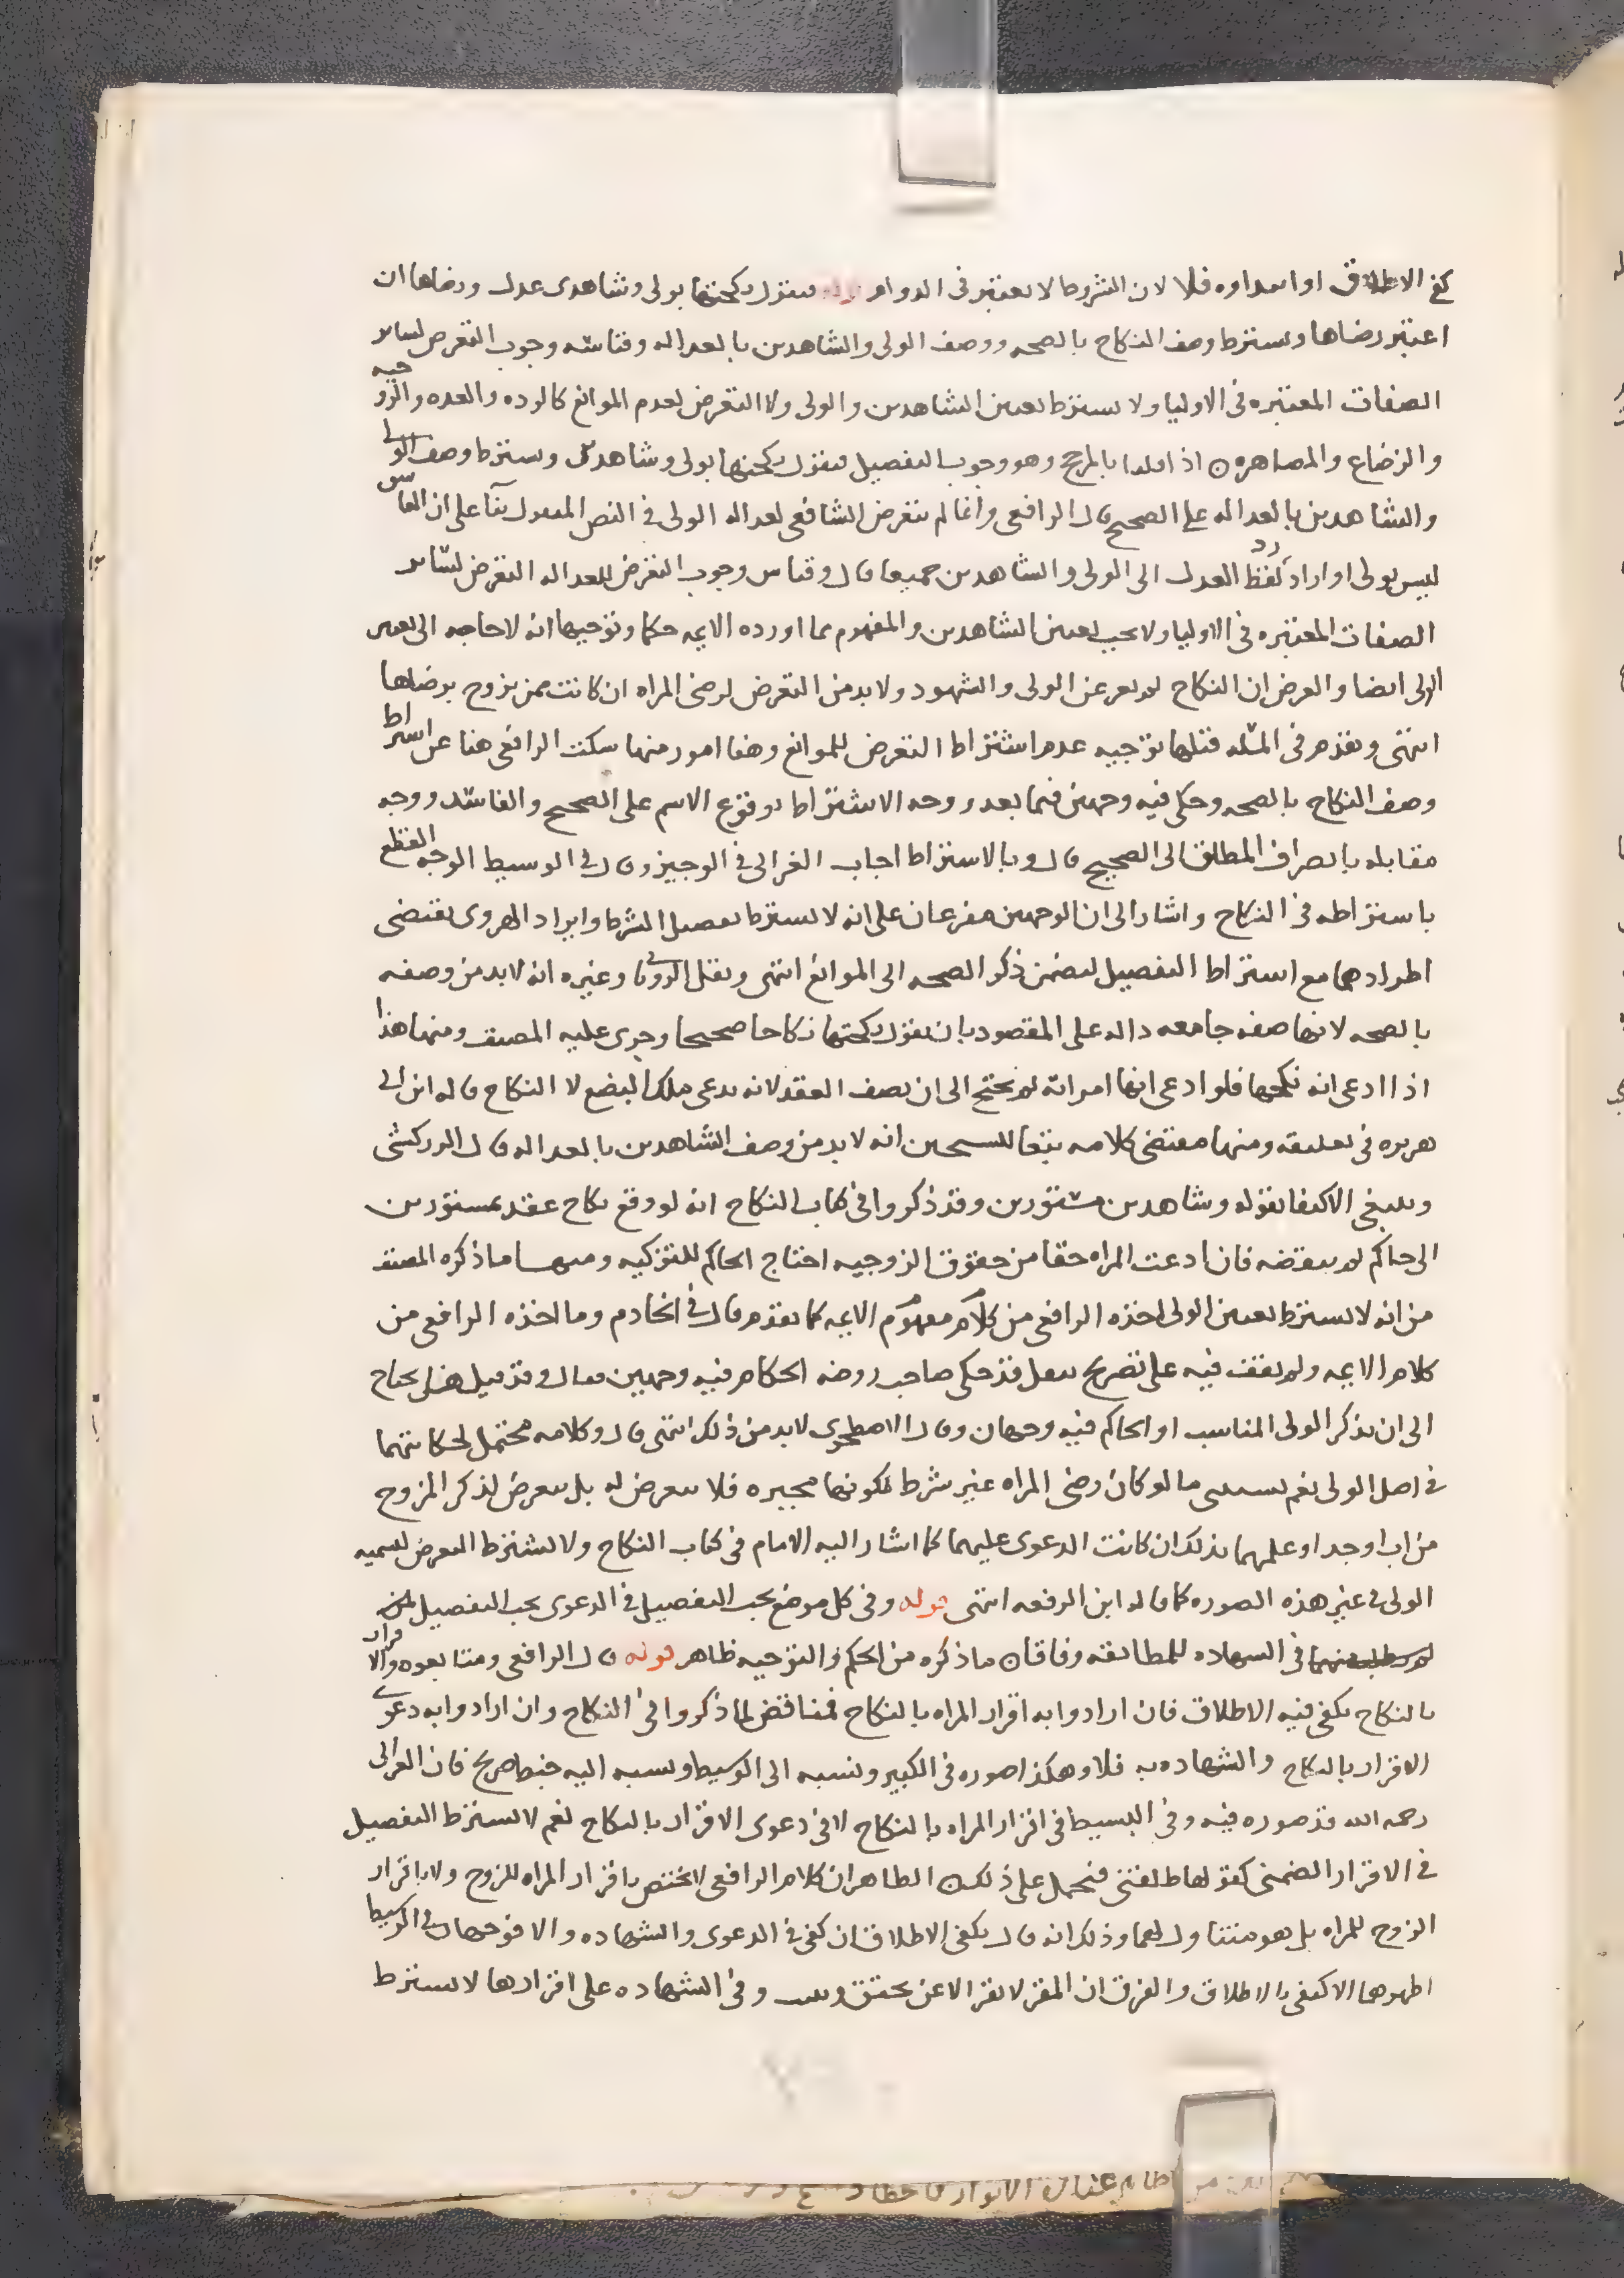 كفى الاطلاق او ابتداوه فلا لان الشروط لا تعتبر في الدوام قوله فيقول نكحتها بولي وشاهدي عدل ورضاها ان
اعتبر رضاها ويشترط وصف النكاح بالصحه ووصف الولي والشاهدين بالعداله وقياسه وجوب التعرض لساير
الصفات المعتبره في الاوليا ولا يشترط تعيين الشاهدين والولي ولا التعرض لعدم الموانع كالرده والعده والزوجيه
والرضاع والمصاهره اذا قلنا بالمرجح وهو وجوب التفصيل فيقول نكحتها بولي وشاهدين ويشترط وصف الولي
والشاهدين بالعداله على الصحيح قال الرافعي وانما لم يتعرض الشافعي لعداله الولي في النص المنقول بنآ على ان الفاسق
ليس بولي او اراد رد لفظ العدل الى الولي والشاهدين جميعا قال وقياس وجوب التعرض للعداله التعرض لساير
الصفات المعتبره في الاوليا ولا يجب تعيين الشاهدين والمفهوم مما اورده الايمه حكما وتوجيها انه لا حاجه الى تعيين
الولي ايضا والغرض ان النكاح لم يعر عن الولي والشهود ولا بد من التعرض لرضى المراه ان كانت ممن يزوج برضاها
انتهى وتقدم في المسله قبلها توجيه عدم اشتراط التعرض للموانع وهنا امور منها سكت الرافعي هنا عن اشتراط
وصف النكاح بالصحه وحكى فيه وجهين فيما بعد ووجه الاشتراط بوقوع الاسم على الصحيح والفاسد ووجه
مقابله بانصراف المطلق الى الصحيح قال وبالاشتراط اجاب الغزالي في الوجيز وقال في الوسيط الوجه القطع
باشتراطه في النكاح واشار الى ان الوجهين مفرعان على انه لا يشترط تفصيل الشرط وايراد الهروي يقتضي
اطرادهما مع اشتراط التفصيل ليضمن ذكر الصحه الى الموانع انتهى ونقل الروياني وغيره انه لا بد من وصفه
بالصحه لانها صفه جامعه داله على المقصود بان يقول نكحتها نكاحا صحيحا وجرى عليه المصنف ومنها هذا
اذا ادعى انه نكحها فلو ادعى انها امراته لم يحتج الى ان يصف العقد لانه يدعي ملك البضع لا النكاح قاله ابن ابي
هريره في تعليقه ومنها مقتضى كلامه تبعا للشيخين انه لا بد من وصف الشاهدين بالعداله قال الزركشي
وينبغي الاكتفا بقوله وشاهدين مستورين وقد ذكروا في كتاب النكاح انه لو وقع نكاح عقد بمستورين
الى حاكم لم ينقضه فان ادعت المراه حقا من حقوق الزوجيه احتاج الحاكم للتزكيه ومنها ما ذكره المصنف
من انه لا يشترط تعيين الولي اخذه الرافعي من كلام مفهوم الايمه كما تقدم قال في الخادم وما اخذه الرافعي من
كلام الايمه ولم يقف فيه على تصريح بنقل قد حكى صاحب روضه الحكام فيه وجهين فقال وقد قيل هل يحتاج
الى ان يذكر الولي المناسب او الحاكم فيه وجهان وقال الاصطخري لا بد من ذلك انتهى قال وكلامه محتمل لحكايتهما
في اصل الولي نعم يستثنى ما لو كان رضى المراه غير شرط لكونها مجبره فلا يتعرض له بل يتعرض لذكر المزوج
من اب او جد او علمهما بذلك ان كانت الدعوى عليهما كما اشار اليه الامام في كتاب النكاح ولا يشترط التعرض لتسميه
الولي في غير هذه الصوره كما قاله ابن الرفعه انتهى قوله وفي كل موضع يجب التفصيل في الدعوى يجب التفصيل
في الشهاده للمطابقه وفاقا ما ذكره من الحكم والتوجيه ظاهر قوله قال الرافعي ومتابعوه والاقرار
بالنكاح يكفي فيه الاطلاق فان ارادوا به اقرار المراه بالنكاح فمناقض لما ذكروا في النكاح وان ارادوا به دعوى
الاقرار بالنكاح والشهاده به فلا وهكذا صوره في الكبير ونسبه الى الوسيط ونسبه اليه خبط صريح فان الغزالي
رحمه الله قد صوره فيه وفي البسيط في اقرار المراه بالنكاح لا في دعوى الاقرار بالنكاح نعم لا يشترط التفصيل
في الاقرار الضمني كقولها طلقني فيحمل على ذلك الظاهر ان كلام الرافعي لا يختص باقرار المراه للزوج ولا باقرار
الزوج للمراه بل هو متناول لهما وذلك انه قال يكفي الاطلاق ان كفى في الدعوى والشهاده والا فوجهان في الوسيط
اظهرهما الاكتفى بالاطلاق والفرق ان المقر لا يقر الا عن تحقيق وفي الشهاده على اقرارها لا يشترط